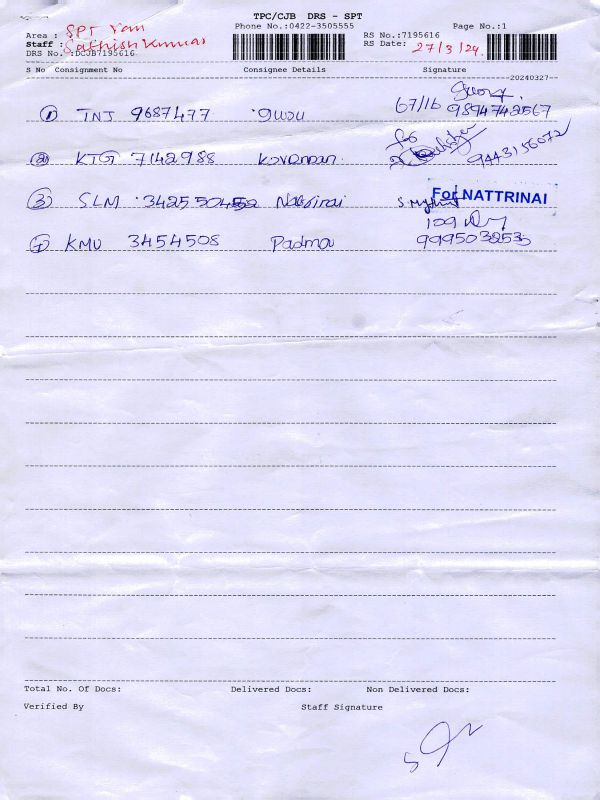 TPC/CJB DRS - SPT
Phone No.:0422-3505555 Page No.:1
Area : SPT Van
Staff : Sathishkumar
DRS No. :DCJB7195616
RS No.:7195616
RS Date: 27/3/24
S No Consignment No Consignee Details Signature
20240327
① TNJ 9687477 67/16 9874742567
② KTG 7142988 9443156072
③ SLM 34255 For NATTRINAI
109
④ KMU 3454508 Padma
Total No. Of Docs: Delivered Docs: Non Delivered Docs:
Verified By Staff Signature